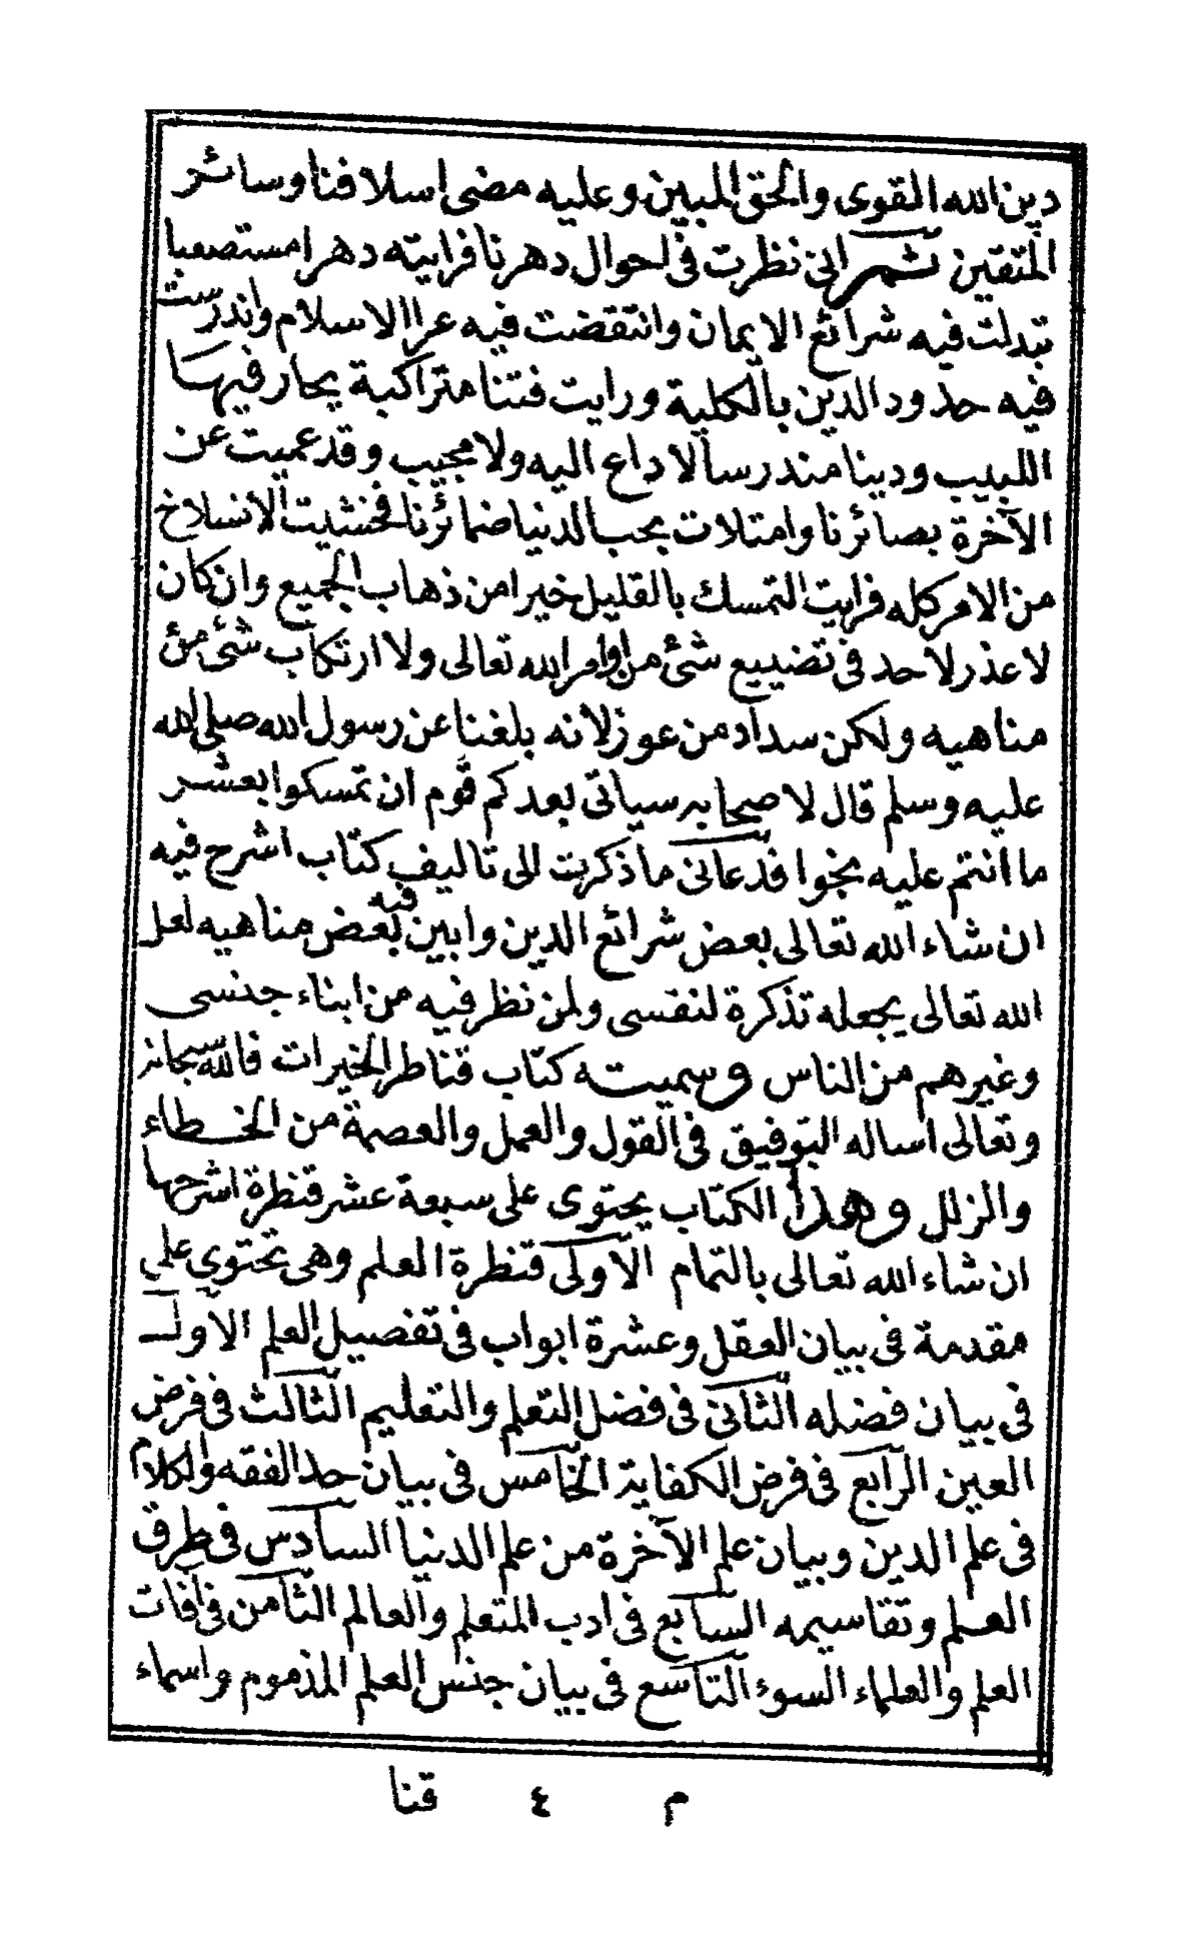 دين الله القوى والحق المبين وعليه مضى اسلافنا وسائر
المتقين ثم انى نظرت فى احوال دهرنا فرايته دهرا مستصعبا
تبدلت فيه شرائع الايمان وانتقضت فيه عرا الاسلام واندرست
فيه حدود الدين بالكلية ورايت فتنا متراكبة يحار فيها
اللبيب ودينا مندرسا لا داع اليه ولا مجيب وقد عميت عن
الآخرة بصائرنا وامتلات بحب الدنيا ضمائرنا فخشيت الانسلاخ
من الامر كله فرايت التمسك بالقليل خيرا من ذهاب الجميع وان كان
لا عذر لاحد فى تضييع شئ من اوامر الله تعالى ولا ارتكاب شئ من
مناهيه ولكن سداد من عوز لانه بلغنا عن رسول الله صلى الله
عليه وسلم قال لاصحابه سياتى بعدكم قوم ان تمسكوا بعشر
ما انتم عليه نجوا فدعانى ما ذكرت الى تاليف كتاب اشرح فيه
ان شاء الله تعالى بعض شرائع الدين وابين فيه بعض مناهيه لعل
الله تعالى يجعله تذكرة لنفسى ولمن نظر فيه من ابناء جنسى
وغيرهم من الناس وسميته كتاب قناطر الخيرات فالله سبحانه
وتعالى اساله التوفيق فى القول والعمل والعصمة من الخطاء
والزلل وهذا الكتاب يحتوى على سبعة عشر قنطرة اشرحها
ان شاء الله تعالى بالتمام الاولى قنطرة العلم وهى تحتوى على
مقدمة فى بيان العقل وعشرة ابواب فى تفصيل العلم الاول
فى بيان فضله الثانى فى فضل التعلم والتعليم الثالث فى فرض
العين الرابع فى فرض الكفاية الخامس فى بيان حد الفقه والكلام
فى علم الدين وبيان علم الآخرة من علم الدنيا السادس فى طرق
العلم وتقاسيمه السابع فى ادب المتعلم والعالم الثامن فى آفات
العلم والعلماء السوء التاسع فى بيان جنس العلم المذموم واسماء
م ٤ قنا